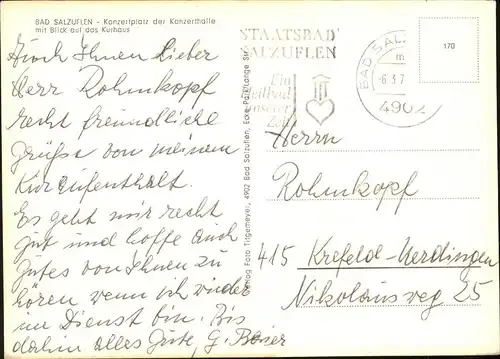 BAD SALZUFLEN - Konzertplatz der Konzerthalle
mit Blick auf das Kurhaus
Auch Ihnen lieber
Herr Rohmkopf
recht freundliche
Grüße von meinem
Kuraufenthalt.
Es geht mir recht
gut und hoffe auch
Gutes von Ihnen zu
hören wenn ich wieder
im Dienst bin. Bis
dahin alles Gute, G. Baier
Verlag Foto Tirgemeyer, 4902 Bad Salzuflen, Ecke Parkstr./Lange Str.
STAATSBAD
SALZUFLEN
Ein
Heilbad
unserer
Zeit
BAD SAL
m
-6.3.7
4902
170
Herrn
Rohmkopf
415 Krefeld-Uerdingen
Nikolausweg 25